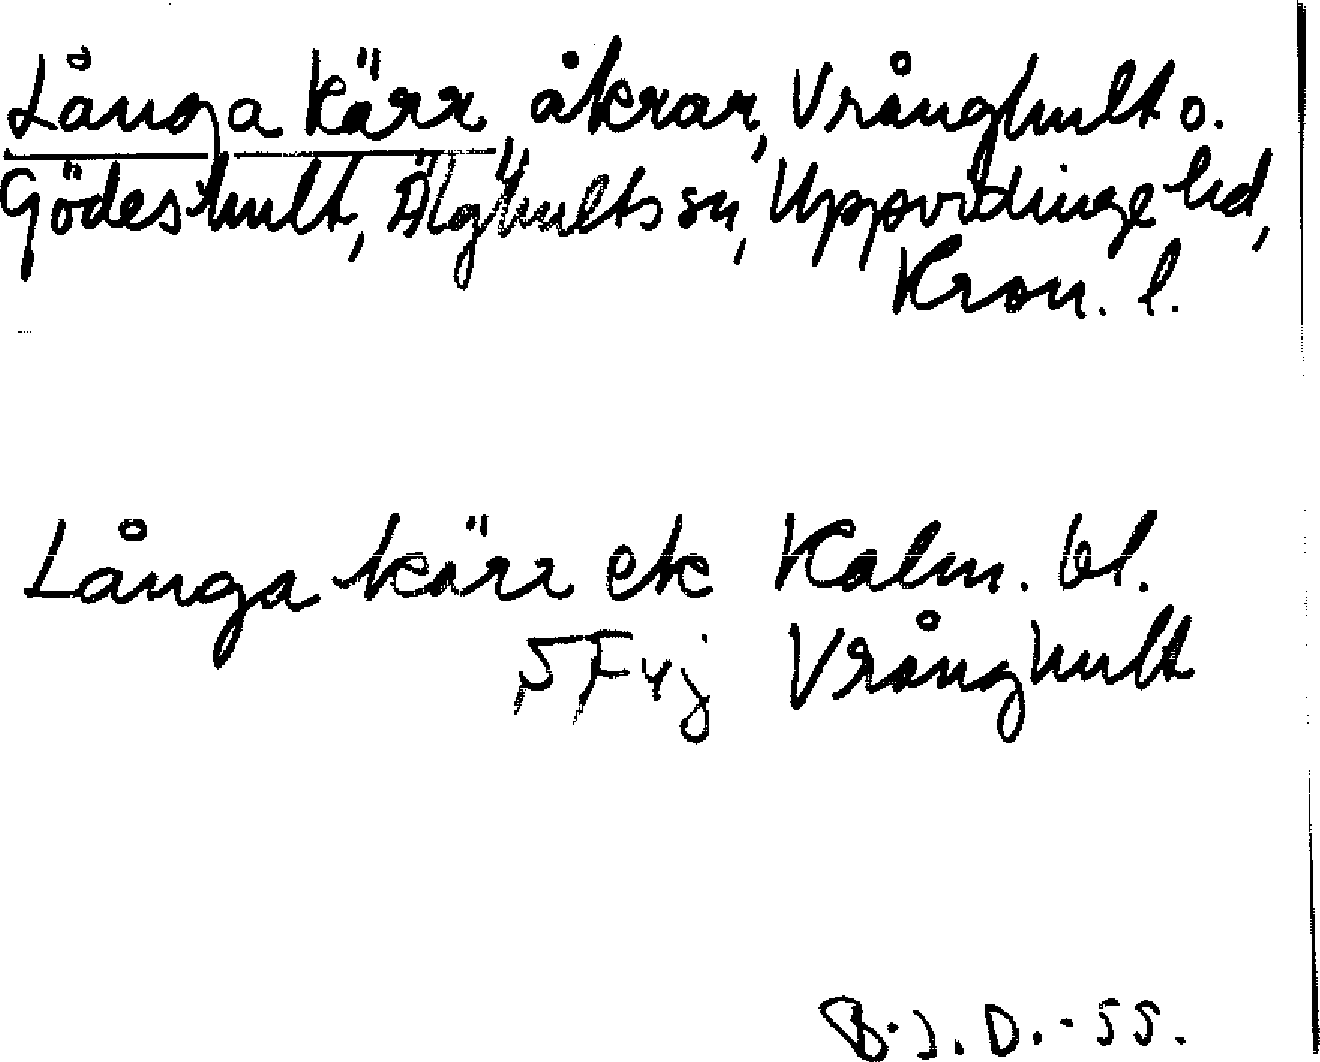 Långa kärr, åkrar, Vrånghult o.
Gödeshult, Älghults sn, Uppvidinge hd,
Kron. l.
Långa kärr ek Kalm. bl.
5 F 4 j Vrånghult
B.J.D.-55.